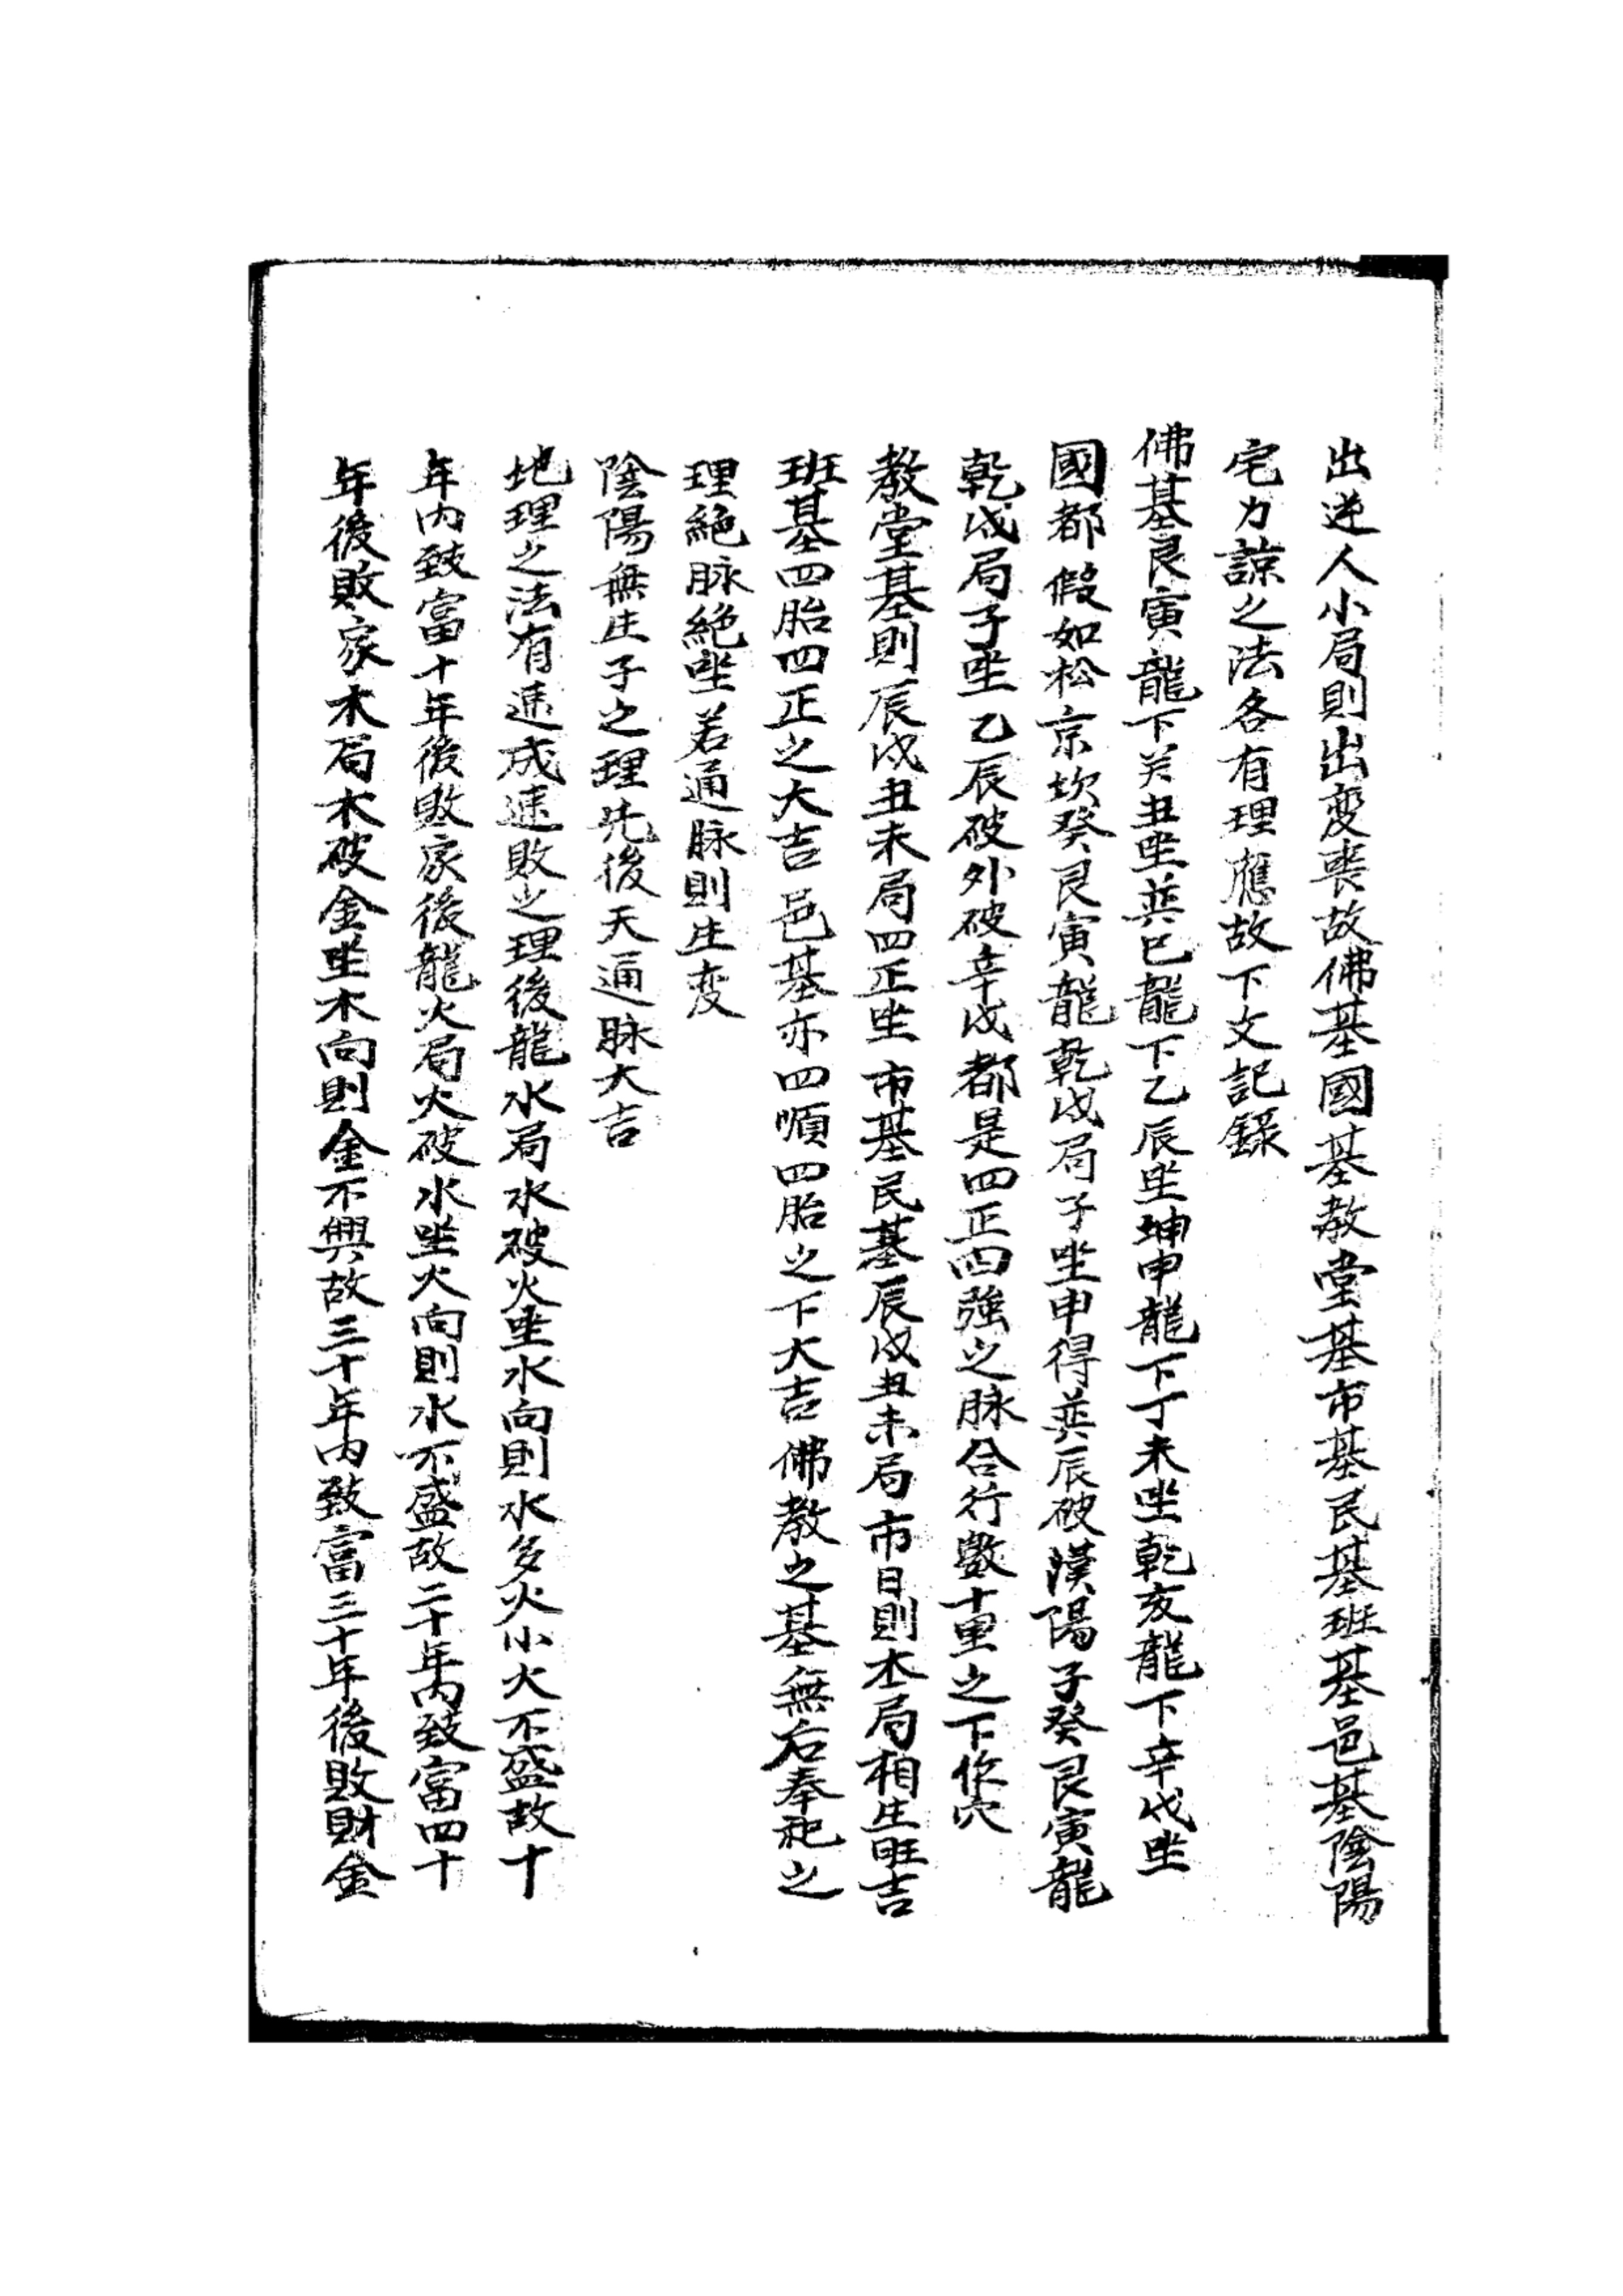 出逆人小局則出变喪故佛基國基教堂基市基民基班基邑基陰陽
宅力諒之法各有理應故下文記錄
佛基艮寅龍下癸丑坐巽巳龍下乙辰坐坤申龍下丁未坐乾亥龍下辛戌坐
國都假如松京坎癸艮寅龍乾戌局子坐申得巽辰破漢陽子癸艮寅龍
乾戌局子坐乙辰破外破辛戌都是四正四強之脉合行數十里之下作穴
教堂基則辰戌丑未局四正坐市基民基辰戌丑未局市日則本局相生旺吉
班基四胎四正之大吉邑基亦四順四胎之下大吉佛教之基無后奉祀之
理絕脉絕坐若通脉則生变
陰陽無生子之理先後天通脉大吉
地理之法有速成速敗之理後龍水局水破火坐水向則水多火小火不盛故十
年內致富十年後敗家後龍火局火破水坐火向則水不盛故二十年內致富四十
年後敗家木局木破金坐木向則金不興故三十年內致富三十年後敗財金